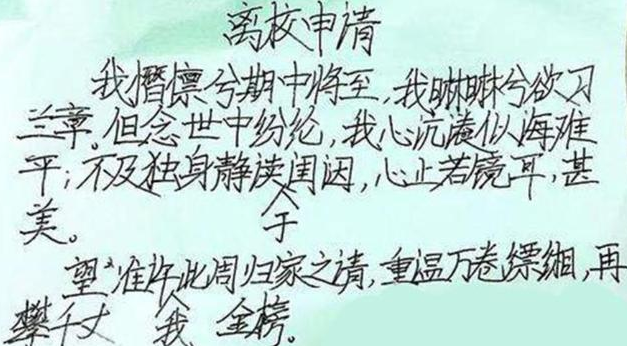 离校申请
我憯懔兮期中将至,我晽晽兮欲习
兰章。但念世中纷纶,我心沆瀁似海难
平;不及独身静读闺因,心止若镜耳,甚
美。 于
望准许此周归家之请,重温万卷缥缃,再
攀千丈 我 金榜。